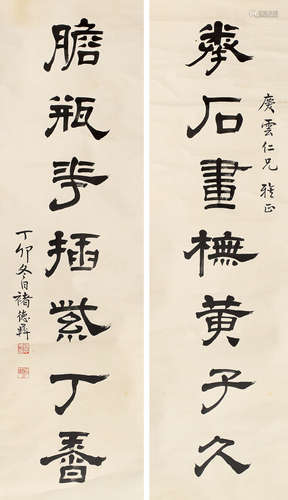 慶雲仁兄 雅正
拳石畫橅黃子久
膽瓶華插紫丁香
丁卯冬日褚德彝